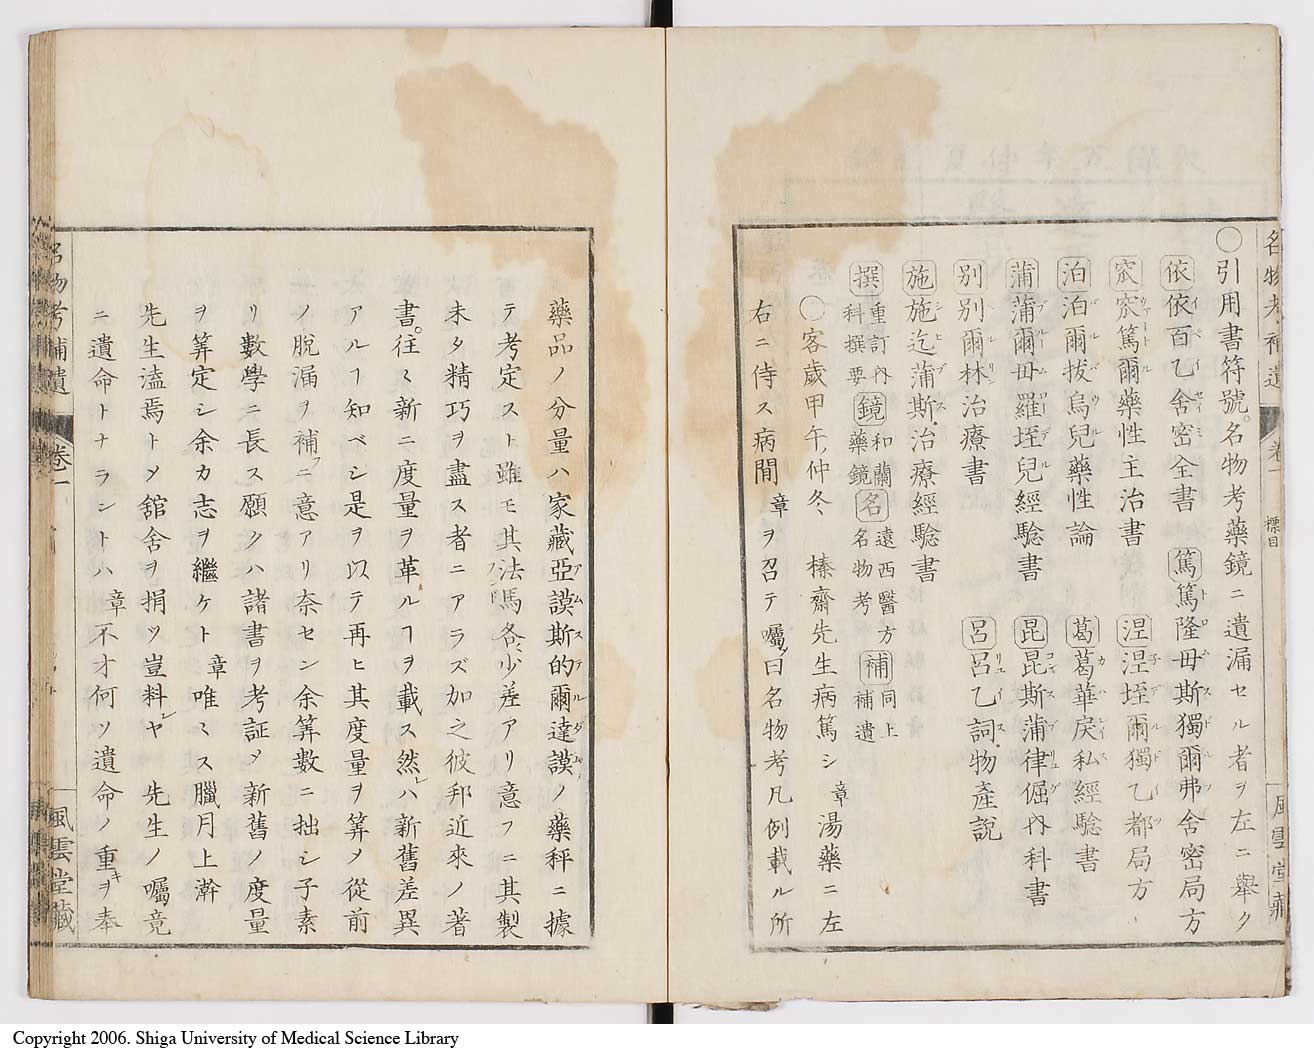 名物考補遺 卷一 標目 風雲堂藏
〇引用書符號。名物考藥鏡ニ遺漏セル者ヲ左ニ舉ク
依 依百乙舍密全書 篤 篤隆毋斯獨爾弗舍密局方
篤爾藥性主治書 涅 涅垤爾獨乙都局方
泊 泊爾拔烏兒藥性論 葛 葛華戻私經驗書
蒲 蒲爾毋羅垤兒經驗書 昆 昆斯蒲律倔內科書
別 別爾林治療書 呂 呂乙詞物產說
施 施迄蒲斯治療經驗書
撰 重訂內科撰要 鏡 和蘭藥鏡 名 遠西醫方名物考 補 同上補遺
〇客歲甲午仲冬、榛齋先生病篤シ 章湯藥ニ左
右ニ侍ス病間 章ヲ召テ囑曰名物考凡例載ル所
藥品ノ分量ハ家藏亞謨斯的爾達謨ノ藥秤ニ據
テ考定スト雖モ其法馬各少差アリ意フニ其製
未タ精巧ヲ盡ス者ニアラズ加之彼邦近來ノ著
書。往々新ニ度量ヲ革ルヿヲ載ス然レハ新舊差異
アルヿ知ベシ是ヲ以テ再ヒ其度量ヲ筭メ從前
ノ脫漏ヲ補フニ意アリ奈セン余筭數ニ拙シ子素
リ數學ニ長ス願クハ諸書ヲ考証メ新舊ノ度量
ヲ筭定シ余カ志ヲ繼ケト 章唯々ス臘月上澣
先生溘焉トメ舘舍ヲ捐ツ豈料ヤ 先生ノ囑竟
ニ遺命トナラントハ 章不才何ソ遺命ノ重キヲ奉
名物考補遺 卷一 風雲堂藏
Copyright 2006. Shiga University of Medical Science Library